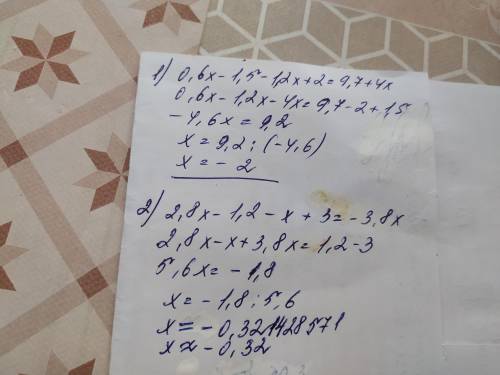 1) 0,6x - 1,5 - 1,2x + 2 = 9,7 + 4x
0,6x - 1,2x - 4x = 9,7 - 2 + 1,5
-4,6x = 9,2
x = 9,2 : (-4,6)
x = - 2
2) 2,8x - 1,2 - x + 3 = - 3,8x
2,8x - x + 3,8x = 1,2 - 3
5,6x = - 1,8
x = - 1,8 : 5,6
x = - 0,321428571
x ≈ - 0,32